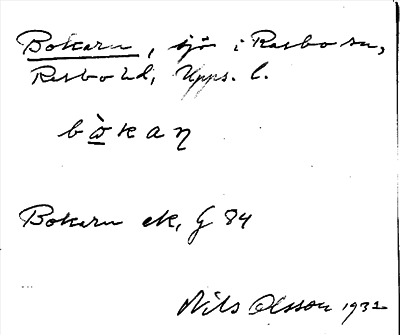 Bokarn, sjö i Rasbo sn,
Rasbo hd, Upps. l.
bòkaṇ
Bokarn ek, G 84
Nils Olsson 1932